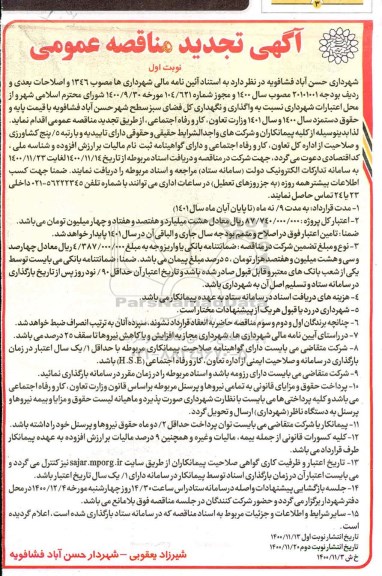 ۳
آگهی تجدید مناقصه عمومی
نوبت اول
شهرداری حسن آباد فشافویه در نظر دارد به استناد آئین نامه مالی شهرداری ها مصوب ۱۳۴۶ و اصلاحات بعدی و
ردیف بودجه ۲۰۱۰۱۰۰۱ مصوب سال ۱۴۰۰ و مجوز شماره ۱۰۴/۶۲۱ مورخه ۱۴۰۰/۹/۳۰ شورای محترم اسلامی شهر و از
محل اعتبارات شهرداری نسبت به واگذاری و نگهداری کل فضای سبز سطح شهر حسن آباد فشافویه با قیمت پایه و
حقوق دستمزد سال ۱۴۰۰ و سال ۱۴۰۱ وزارت تعاون، کار و رفاه اجتماعی، از طریق تجدید مناقصه عمومی اقدام نماید.
لذا بدینوسیله از کلیه پیمانکاران و شرکت های واجدالشرایط حقیقی و حقوقی دارای تاییدیه و با رتبه / پنج کشاورزی
و صلاحیت از اداره کل تعاون، کار و رفاه اجتماعی و دارای گواهینامه ثبت نام مالیات بر ارزش افزوده و شناسه ملی،
کد اقتصادی دعوت می گردد، جهت شرکت در مناقصه و دریافت اسناد مربوطه از تاریخ ۱۴۰۰/۱۱/۱۴ لغایت ۱۴۰۰/۱۱/۲۳
به سامانه تدارکات الکترونیک دولت (سامانه ستاد) مراجعه و اسناد مربوطه را دریافت نمایند. ضمنا جهت کسب
اطلاعات بیشتر همه روزه (به جز روزهای تعطیل) در ساعات اداری می توانند با شماره تلفن ۵۶۲۲۲۳۴۵-۰۲۱ داخلی
۲۳ یا ۲۴ تماس حاصل نمایند.
۱- مدت قرارداد: به مدت ۹/ نه ماه (تا پایان آبان ماه سال ۱۴۰۱)
۲- اعتبار کل پروژه: ۸۷/۷۴۰/۰۰۰/۰۰۰ ریال معادل هشت میلیارد و هفتصد و هفتاد و چهار میلیون تومان می باشد.
ضمنا: تامین اعتبار فوق در اصلاح و متمم بودجه سال جاری و الباقی آن در سال ۱۴۰۱ پایدار خواهد شد.
۳- نوع و مبلغ تضمین شرکت در مناقصه: ضمانتنامه بانکی یا واریز وجه به مبلغ ۴/۳۸۷/۰۰۰/۰۰۰ ریال معادل چهارصد
و سی و هشت میلیون و هفتصد هزار تومان، ۵ درصد مبلغ پیمان می باشد. ضمنا: ضمانتنامه بانکی می بایست توسط
یکی از شعب بانک های معتبر و قابل قبول صادر شده باشد و تاریخ اعتبار آن حداقل ۹۰/ نود روز پس از تاریخ بارگذاری
در سامانه ستاد و تسلیم اصل آن به شهرداری باشد.
۴- هزینه های دریافت اسناد در سامانه ستاد به عهده پیمانکار می باشد.
۵- شهرداری در رد یا قبول هر یک از پیشنهادات مختار است.
۶- چنانچه برندگان اول و دوم و سوم مناقصه حاضر به انعقاد قرارداد نشوند، سپرده آنان به ترتیب انصراف ضبط خواهد شد.
۷- در راستای آیین نامه مالی شهرداری ها، شهرداری مجاز به افزایش و یا کاهش نیروها تا سقف ۲۵ درصد می باشد.
۸- شرکت متقاضی می بایست دارای گواهینامه صلاحیت پیمانکاری مربوطه با حداقل ۱/ یک سال اعتبار در زمان
بارگذاری در سامانه و صلاحیت ایمنی از اداره تعاون، کار و رفاه اجتماعی (H.S.E) باشد.
۹- شرکت متقاضی می بایست دارای رزومه باشد و اسناد مربوطه را در زمان مقرر در سامانه بارگذاری نمایند.
۱۰- پرداخت حقوق و مزایای قانونی به تمامی نیروها و پرسنل مربوطه بر اساس قانون وزارت تعاون، کار و رفاه اجتماعی
می باشد و کلیه پرداختی ها می بایست با نظارت شهرداری صورت پذیرد و ماهیانه لیست حقوق و مزایا و بیمه نیروها و
پرسنل به دستگاه ناظر (شهرداری) ارسال و تحویل گردد.
۱۱- پیمانکار یا شرکت متقاضی می بایست توان پرداخت حداقل ۲/ دو ماه حقوق نیروها و پرسنل خود را داشته باشد.
۱۲- کلیه کسورات قانونی از جمله بیمه، مالیات و غیره و همچنین ۹ درصد مالیات بر ارزش افزوده به عهده پیمانکار
طرف قرارداد می باشد.
۱۳- تاریخ اعتبار و ظرفیت کاری گواهی صلاحیت پیمانکاران از طریق سایت sajar.mporg.ir نیز کنترل می گردد و
می بایست اعتبار آن در زمان بارگذاری اسناد توسط پیمانکار در سامانه دارای ۱/ یک سال تاریخ اعتبار باشد.
۱۴- جلسه بازگشایی پیشنهادات واصله در سامانه ستاد راس ساعت ۱۴/۳۰ روز چهارشنبه مورخه ۱۴۰۰/۱۲/۴ در محل
دفتر شهردار برگزار می گردد و حضور شرکت کنندگان در جلسه مناقصه فوق بلامانع می باشد.
۱۵- سایر شرایط و اطلاعات و جزئیات مربوط به اسناد مناقصه که در سامانه ستاد بارگذاری شده است، اعلام گردیده
است.
تاریخ انتشار نوبت اول ۱۴۰۰/۱۱/۱۳
تاریخ انتشار نوبت دوم ۱۴۰۰/۱۱/۲۰
خ ش ۱۴۰۰/۱۱/۳
شیرزاد یعقوبی - شهردار حسن آباد فشافویه